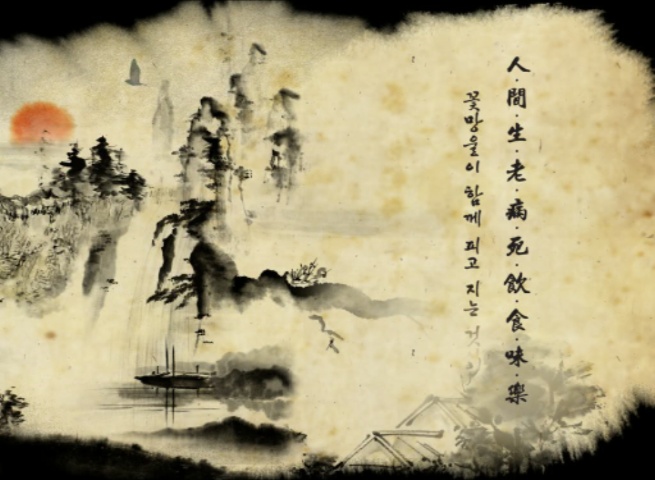 人·間·生·老·病·死·飮·食·味·樂
꽃망울이 함께 피고 지는 것